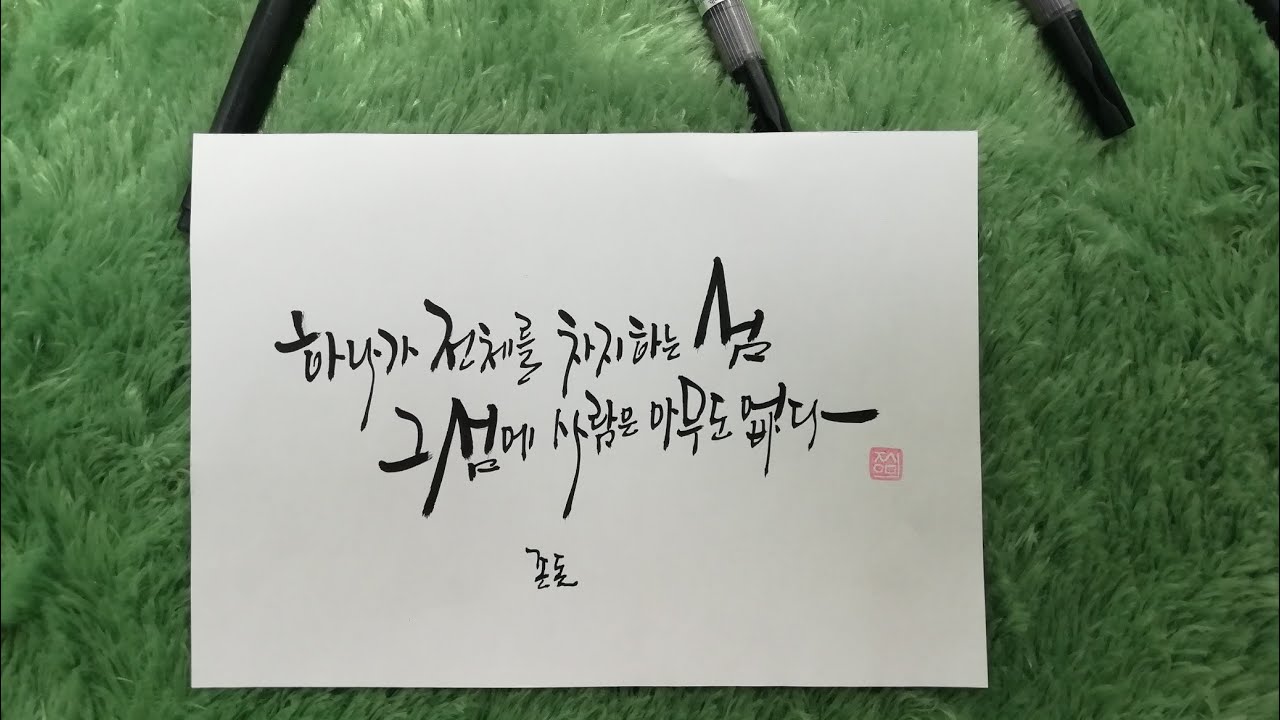 하나가 전체를 차지하는 섬
그 섬에 사람은 아무도 없다
존 돈